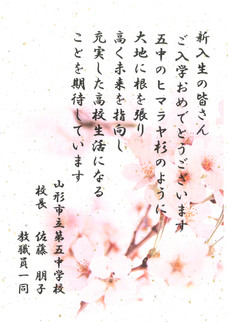 新入生の皆さん
ご入学おめでとうございます
五中のヒマラヤ杉のように
大地に根を張り
高く未来を指向し
充実した高校生活になる
ことを期待しています
山形市立第五中学校
校長　佐藤　朋子
教職員一同